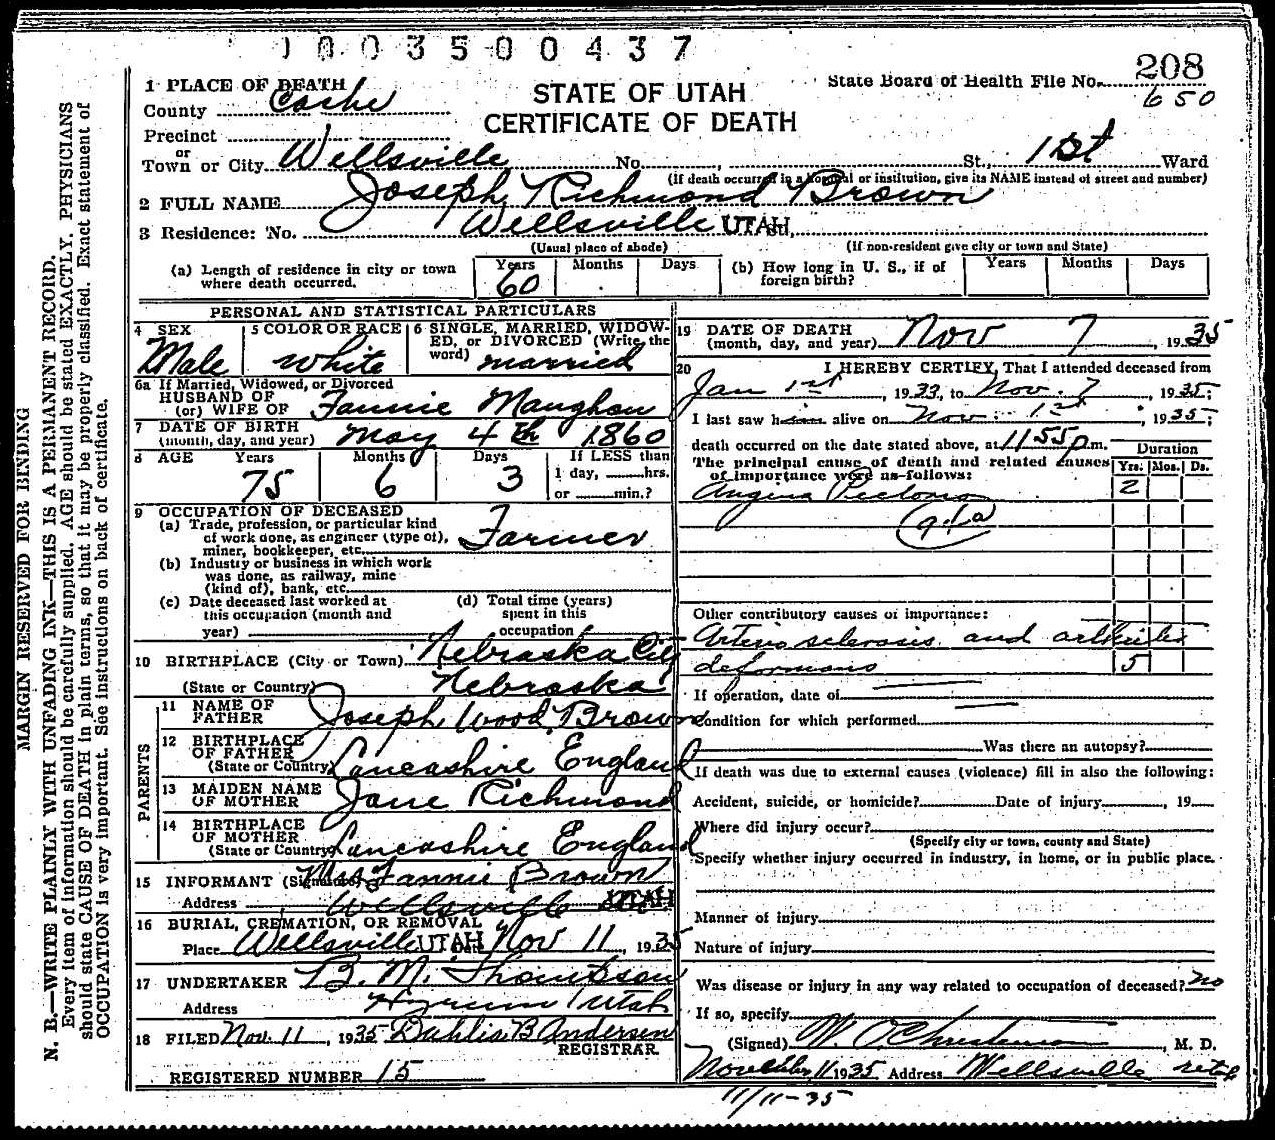 1003500437
208
State Board of Health File No.
650
1 PLACE OF DEATH
STATE OF UTAH
County Cache
CERTIFICATE OF DEATH
Precinct
or
Town or City Wellsville No. , St., 1st Ward
(If death occurred in a hospital or institution, give its NAME instead of street and number)
2 FULL NAME Joseph Richmond Brown
3 Residence: No. Wellsville UTAH St.,
(Usual place of abode) (If non-resident give city or town and State)
(a) Length of residence in city or town where death occurred. Years 60 Months Days
(b) How long in U. S., if of foreign birth? Years Months Days
PERSONAL AND STATISTICAL PARTICULARS
4 SEX Male
5 COLOR OR RACE white
6 SINGLE, MARRIED, WIDOWED, or DIVORCED (Write the word) married
6a If Married, Widowed, or Divorced
HUSBAND OF
(or) WIFE OF Fannie Maughan
7 DATE OF BIRTH
(month, day, and year) May 4th 1860
8 AGE Years 75 Months 6 Days 3 If LESS than
1 day, hrs.
or min.?
9 OCCUPATION OF DECEASED
(a) Trade, profession, or particular kind
of work done, as engineer (type of),
miner, bookkeeper, etc. Farmer
(b) Industry or business in which work
was done, as railway, mine
(kind of), bank, etc.
(c) Date deceased last worked at
this occupation (month and
year)
(d) Total time (years)
spent in this
occupation
10 BIRTHPLACE (City or Town) Nebraska City
(State or Country) Nebraska
PARENTS
11 NAME OF
FATHER Joseph Wood Brown
12 BIRTHPLACE
OF FATHER
(State or Country) Lancashire England
13 MAIDEN NAME
OF MOTHER Jane Richmond
14 BIRTHPLACE
OF MOTHER
(State or Country) Lancashire England
15 INFORMANT (Signature) Mrs Fannie Brown
Address Wellsville UTAH
16 BURIAL, CREMATION, OR REMOVAL
Place Wellsville UTAH Date Nov 11, 1935
17 UNDERTAKER B. M. Thompson
Address Hyrum Utah
18 FILED Nov. 11, 1935 Dahlis B Andersen
REGISTRAR.
REGISTERED NUMBER 15
19 DATE OF DEATH
(month, day, and year) Nov 7, 1935
20 I HEREBY CERTIFY, That I attended deceased from
Jan 1st, 1933, to Nov. 7, 1935;
I last saw him alive on Nov. 1st, 1935;
death occurred on the date stated above, at 11 55 p.m.
Duration
The principal cause of death and related causes
of importance were as follows:
Yrs. Mos. Ds.
Angina Pectoris 2
Other contributory causes of importance:
Arterio sclerosis and arthritis
deformans 5
If operation, date of
Condition for which performed
Was there an autopsy?
If death was due to external causes (violence) fill in also the following:
Accident, suicide, or homicide? Date of injury , 19
Where did injury occur?
(Specify city or town, county and State)
Specify whether injury occurred in industry, in home, or in public place.
Manner of injury
Nature of injury
Was disease or injury in any way related to occupation of deceased? no
If so, specify
(Signed) W. O Christenson, M. D.
November 11 1935 Address Wellsville Utah
11/11-35
MARGIN RESERVED FOR BINDING
N. B.—WRITE PLAINLY WITH UNFADING INK—THIS IS A PERMANENT RECORD.
Every item of information should be carefully supplied. AGE should be stated EXACTLY. PHYSICIANS
should state CAUSE OF DEATH in plain terms, so that it may be properly classified. Exact statement of
OCCUPATION is very important. See instructions on back of certificate.